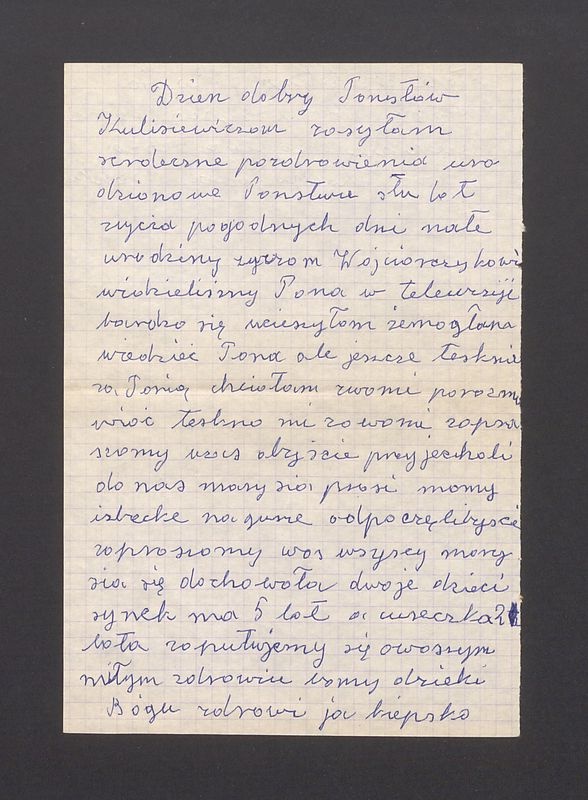 Dzien dobry Panstów
Kulisiewiczom zasyłam
serdeczne pozdrowienia uro
dzionowe Panstwu stu lat
zycia pogodnych dni nate
urodziny zyczom Wojciorczykowi
widzieliszmy Pana w telewizji
bardzo się ucieszyłam żemogłam
wiedzieć Pana ale jeszcze tesknie
za Panią chciałam zwami porozma
wiać teskno mi zawami zapra
szamy was abyście przyjechali
do nas marysia prosi mamy
izbecke nagurze odpoczęlibyscie
zaprosiomy was wszyscy mary
sia się dochowała dwoje dzieci
synek ma 5 lat a cureczka 2
lata zaputujemy się owaszym
miłym zdrowiu bomy dzieki
Bógu zdrowi ja kiepsko